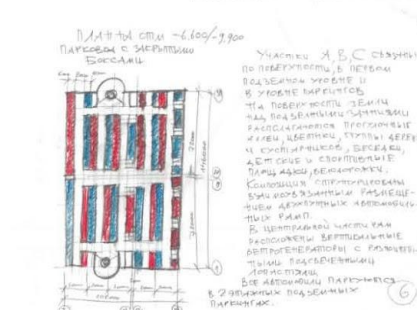 ПЛАН НА ОТМ -6.600/-9.900
ПАРКОВКА С ЗАКРЫТЫМИ
БОКСАМИ
УЧАСТКИ А, В, С СВЯЗАНЫ
ПО ПОВЕРХНОСТИ, В ПЕРВОМ
ПОДЗЕМНОМ УРОВНЕ И
В УРОВНЕ ПАРКИНГОВ
НА ПОВЕРХНОСТИ ЗЕМЛИ
НАД ПОДЗЕМНЫМИ ЗДАНИЯМИ
РАСПОЛАГАЮТСЯ ПРОГУЛОЧНЫЕ
АЛЛЕИ, ЦВЕТНИКИ, ГРУППЫ ДЕРЕВ
И КУСТАРНИКОВ, БЕСЕДКИ,
ДЕТСКИЕ И СПОРТИВНЫЕ
ПЛОЩАДКИ, ВЕЛОДОРОЖКИ.
КОМПОЗИЦИЯ СТРУКТУРИРОВАНА
ВЗАИМОУВЯЗАННЫМ РАЗМЕЩЕ-
НИЕМ ДВУХПУТНЫХ АВТОМОБИЛЬ-
НЫХ РАМП.
В ЦЕНТРАЛЬНОЙ ЧАСТИ РАМП
РАСПОЛОЖЕНЫ ВЕРТИКАЛЬНЫЕ
ВЕТРОГЕНЕРАТОРЫ С
ПОДСВЕЧЕННЫМИ
ЛОПАСТЯМИ
ВСЕ АВТОМОБИЛИ ПАРКУЮТСЯ
В 2 ЭТАЖНЫХ ПОДЗЕМНЫХ
ПАРКИНГАХ.
6